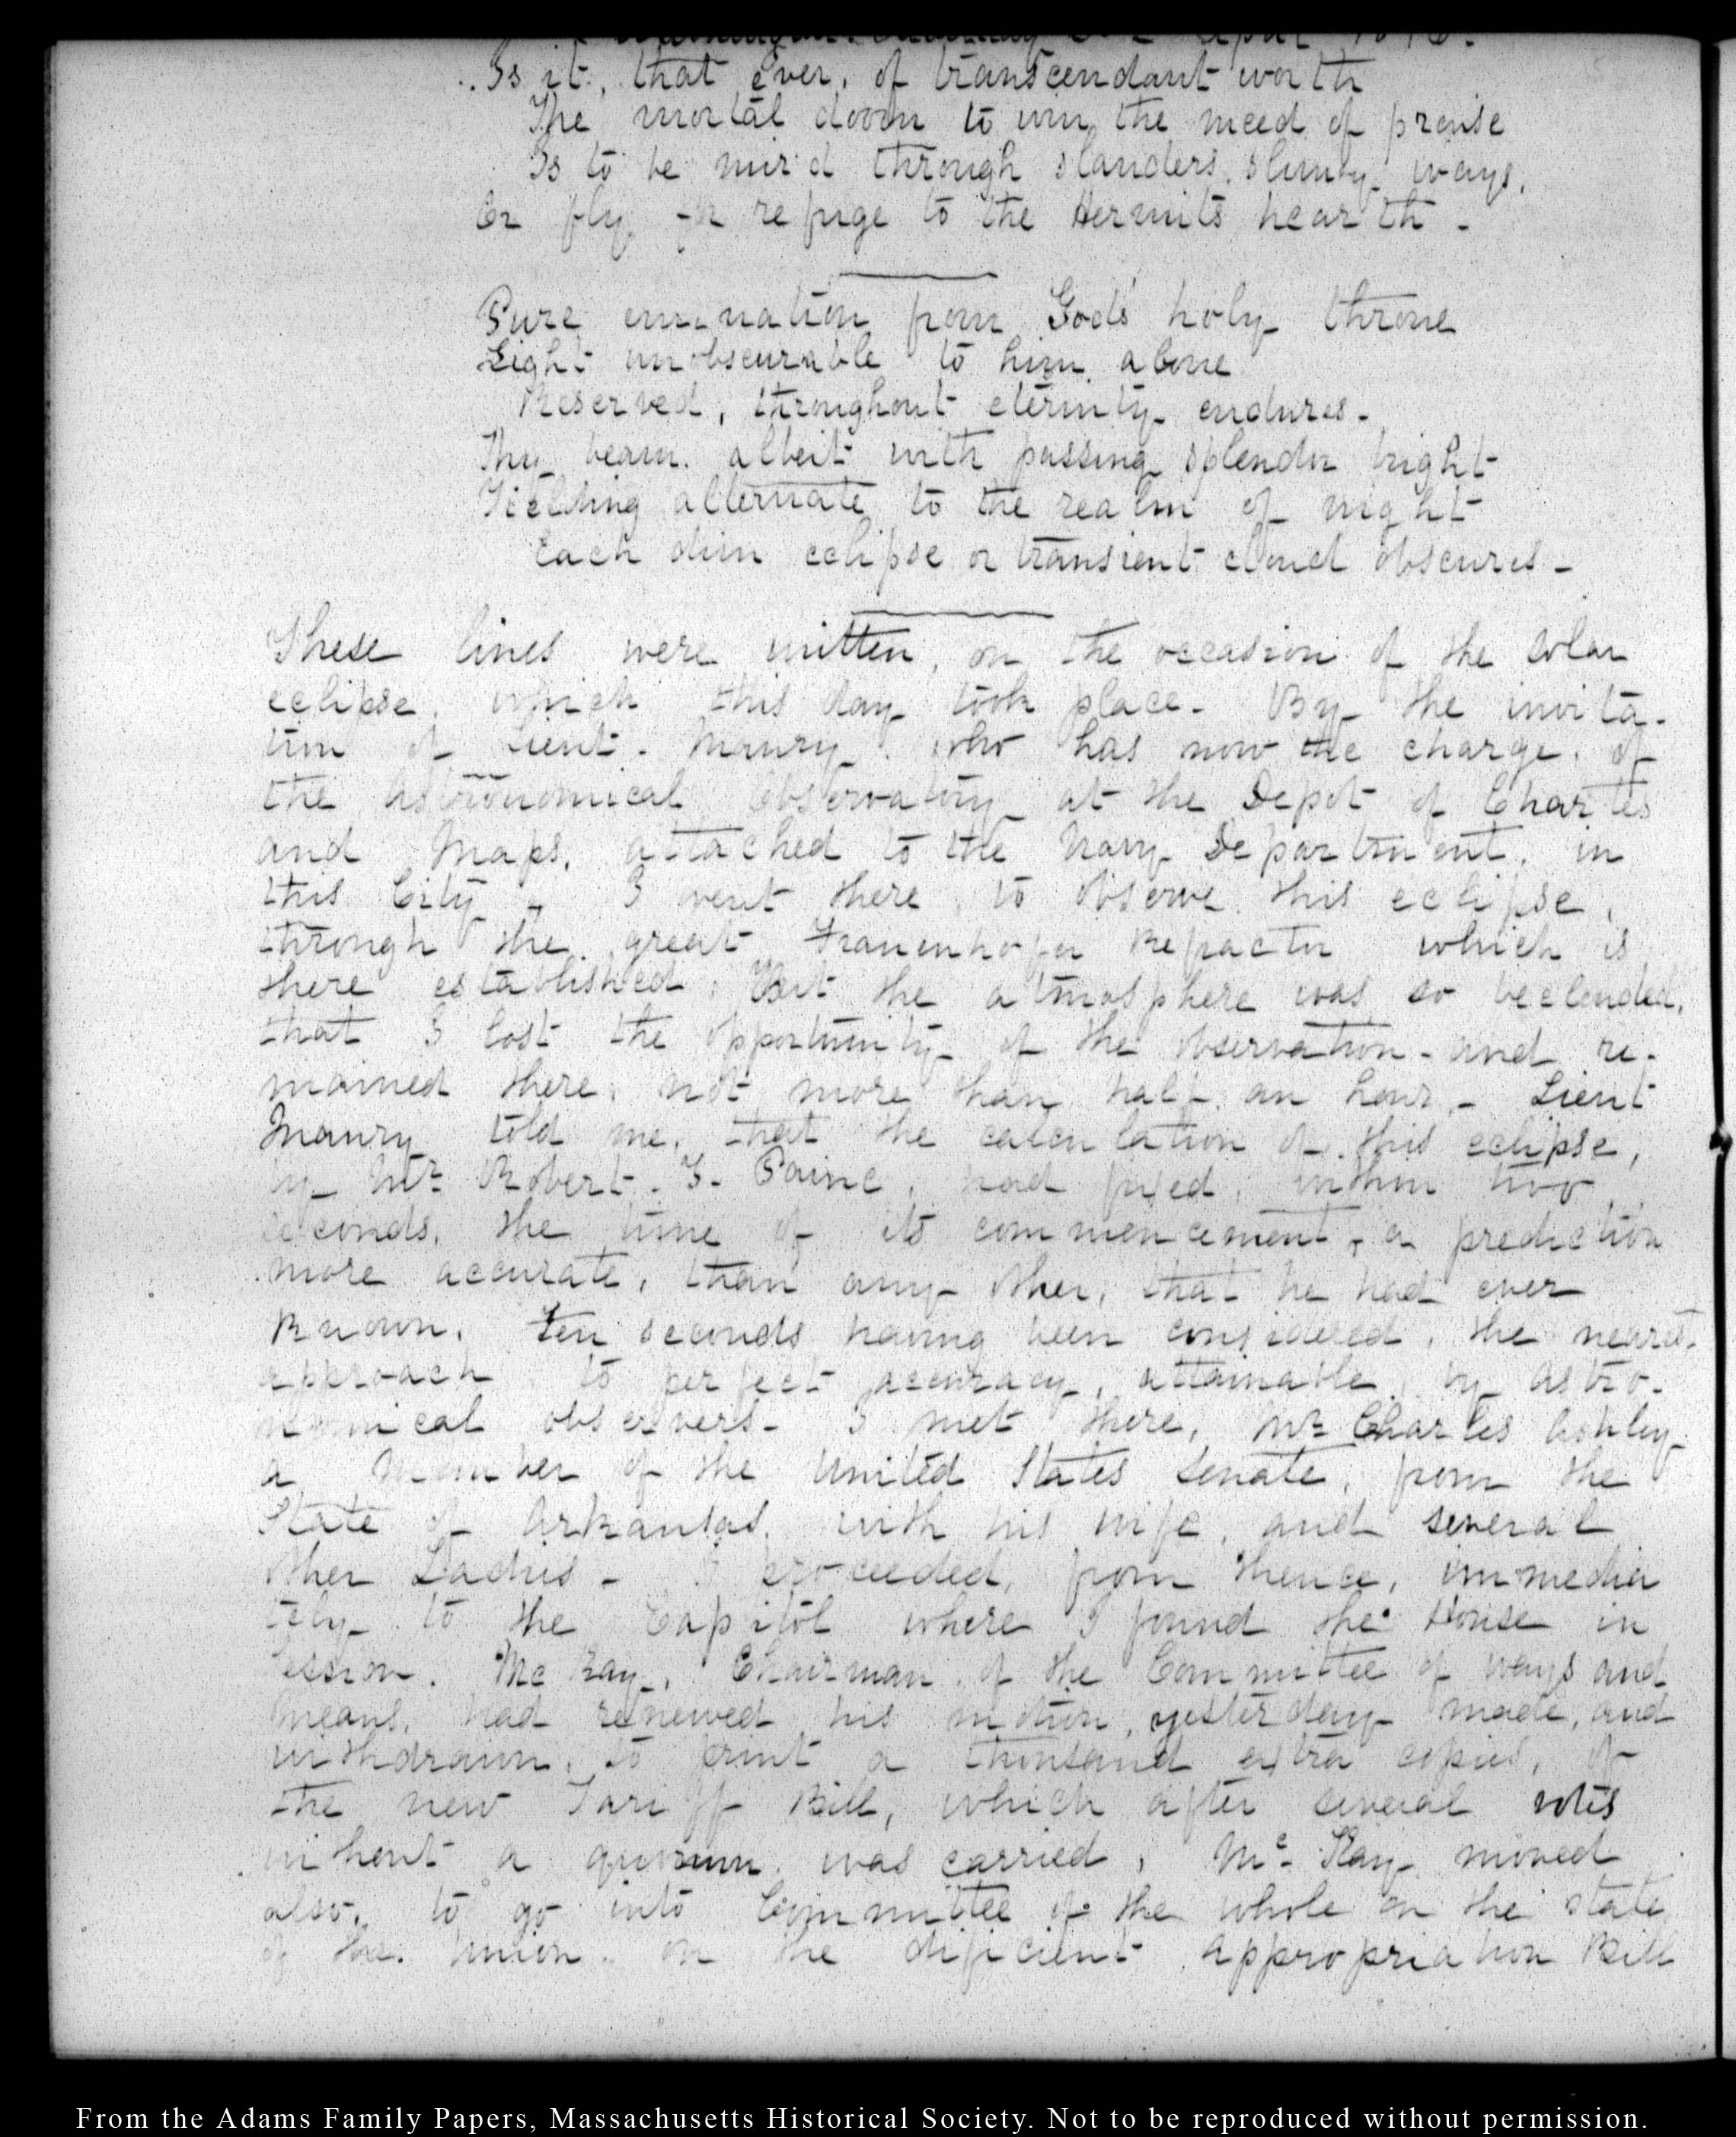 Washington. Saturday 25. April 1846.
Is it, that ever, of transcendant worth
The mortal doom to win the meed of praise
Is to be mir'd through slanders slimy ways,
Or fly for refuge to the Hermits hearth -
Pure emanation from God's holy throne
Light unobscurable to him alone
Reserved, throughout eternity endures -
Thy beam, albeit with passing splendor bright
Yielding alternate to the realm of night
Each dim eclipse or transient cloud obscures -
These lines were written, on the occasion of the solar
eclipse, which this day took place - By the invita-
tion of Lieut. Maury, who has now the charge, of
the Astronomical Observatory at the Depot of Charts
and Maps, attached to the Navy Department, in
this City - I went there, to observe this eclipse,
through the great Frauenhofer Refractor which is
there established, But the atmosphere was so beclouded,
that I lost the opportunity of the observation - and re-
mained there, not more than half an hour - Lieut
Maury told me, that the calculation of this eclipse,
by Mr Robert. T. Paine, had fixed, within two
seconds, the time of its commencement, a prediction
more accurate, than any other, that he had ever
known, ten seconds having been considered, the nearest
approach to perfect accuracy, attainable, by astro-
nomical observers - I met there, Mr Charles Ashley
a Member of the United States Senate, from the
State of Arkansas, with his wife, and several
other Ladies - I proceeded, from thence, immedia
tely to the Capitol where I found the House in
session. McKay, Chairman of the Committee of ways and
means, had renewed his motion, yesterday made, and
withdrawn, to print a thousand extra copies, of
the new Tariff Bill, which after several votes
without a quorum was carried, McKay moved
also, to go into Committee of the whole on the state
of the Union on the deficient appropriation Bill
From the Adams Family Papers, Massachusetts Historical Society. Not to be reproduced without permission.